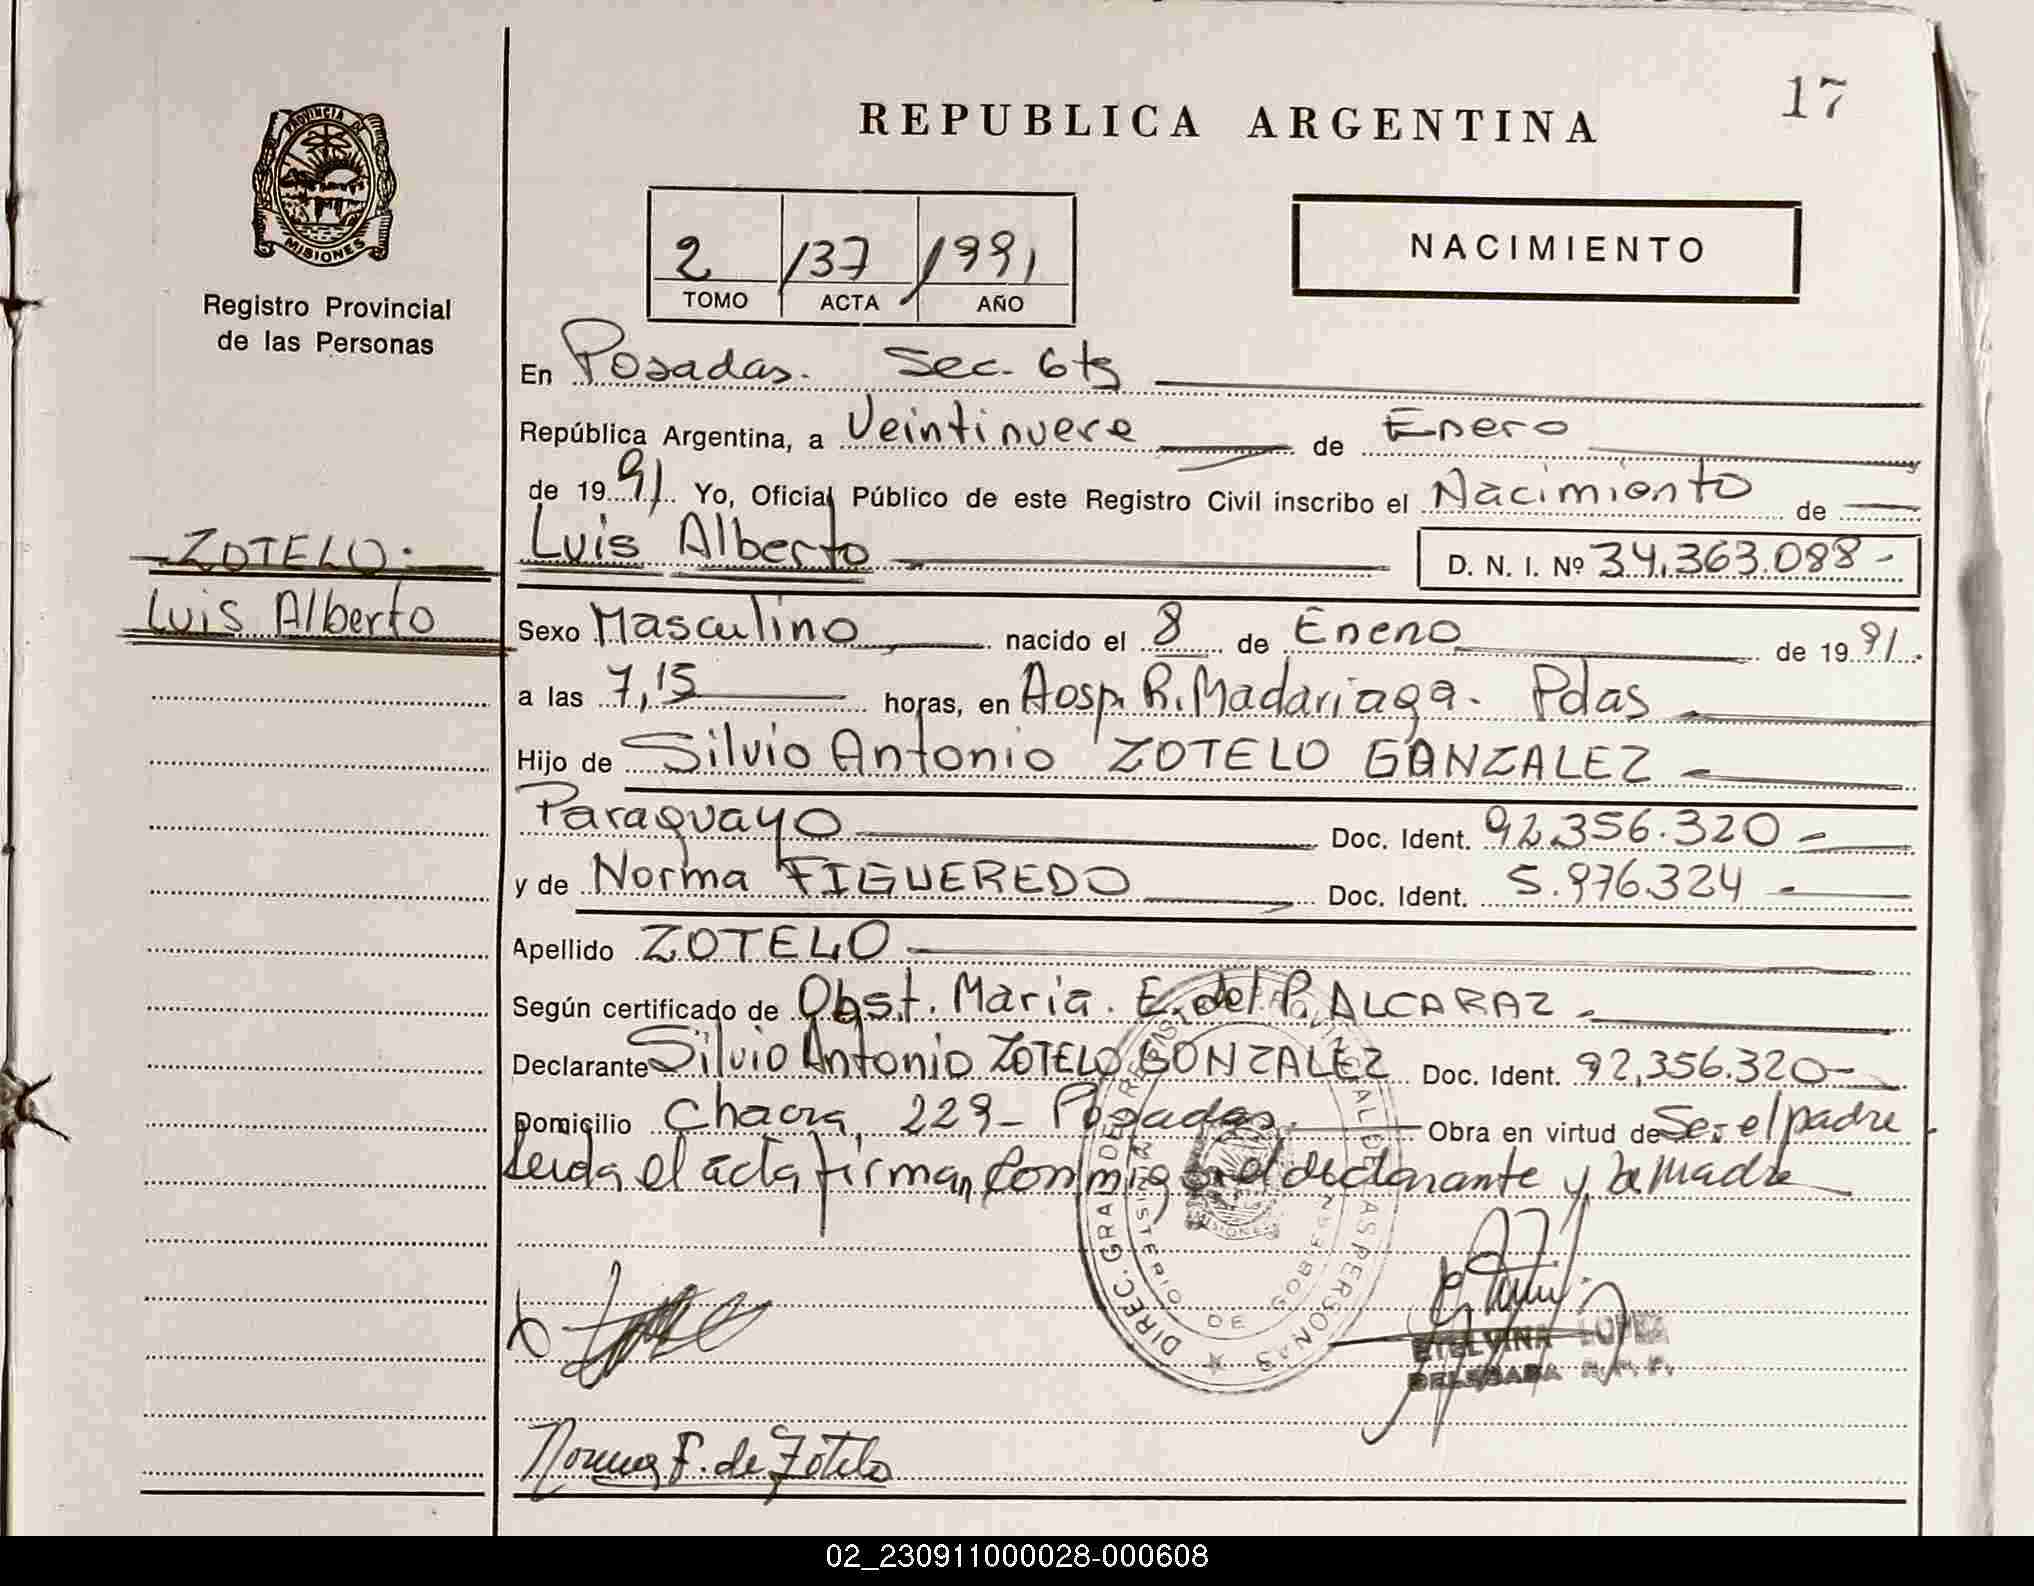 17
REPUBLICA ARGENTINA
PROVINCIA DE
MISIONES
Registro Provincial
de las Personas
2 137 1991
TOMO ACTA AÑO
NACIMIENTO
En Posadas. Sec. 6ta
República Argentina, a Veintinueve de Enero
de 1991. Yo, Oficial Público de este Registro Civil inscribo el Nacimiento de
ZOTELO.
Luis Alberto
Luis Alberto D. N. I. Nº 34.363.088-
Sexo Masculino nacido el 8 de Enero de 1991.
a las 7,15 horas, en Hosp. R. Madariaga. Pdas
Hijo de Silvio Antonio ZOTELO GONZALEZ
Paraguayo Doc. Ident. 92.356.320-
y de Norma FIGUEREDO Doc. Ident. 5.976.324-
Apellido ZOTELO
Según certificado de Obst. Maria. E. del P. ALCARAZ
Declarante Silvio Antonio ZOTELO GONZALEZ Doc. Ident. 92,356.320-
Domicilio Chacra 229- Posadas. Obra en virtud de Ser el padre
Leida el acta firman conmigo el declarante y la Madre
MINISTERIO DE GOBIERNO
MISIONES
ETELVINA LOPEZ
DELEGADA R.P.P.
Norma F. de Zotelo
02_230911000028-000608